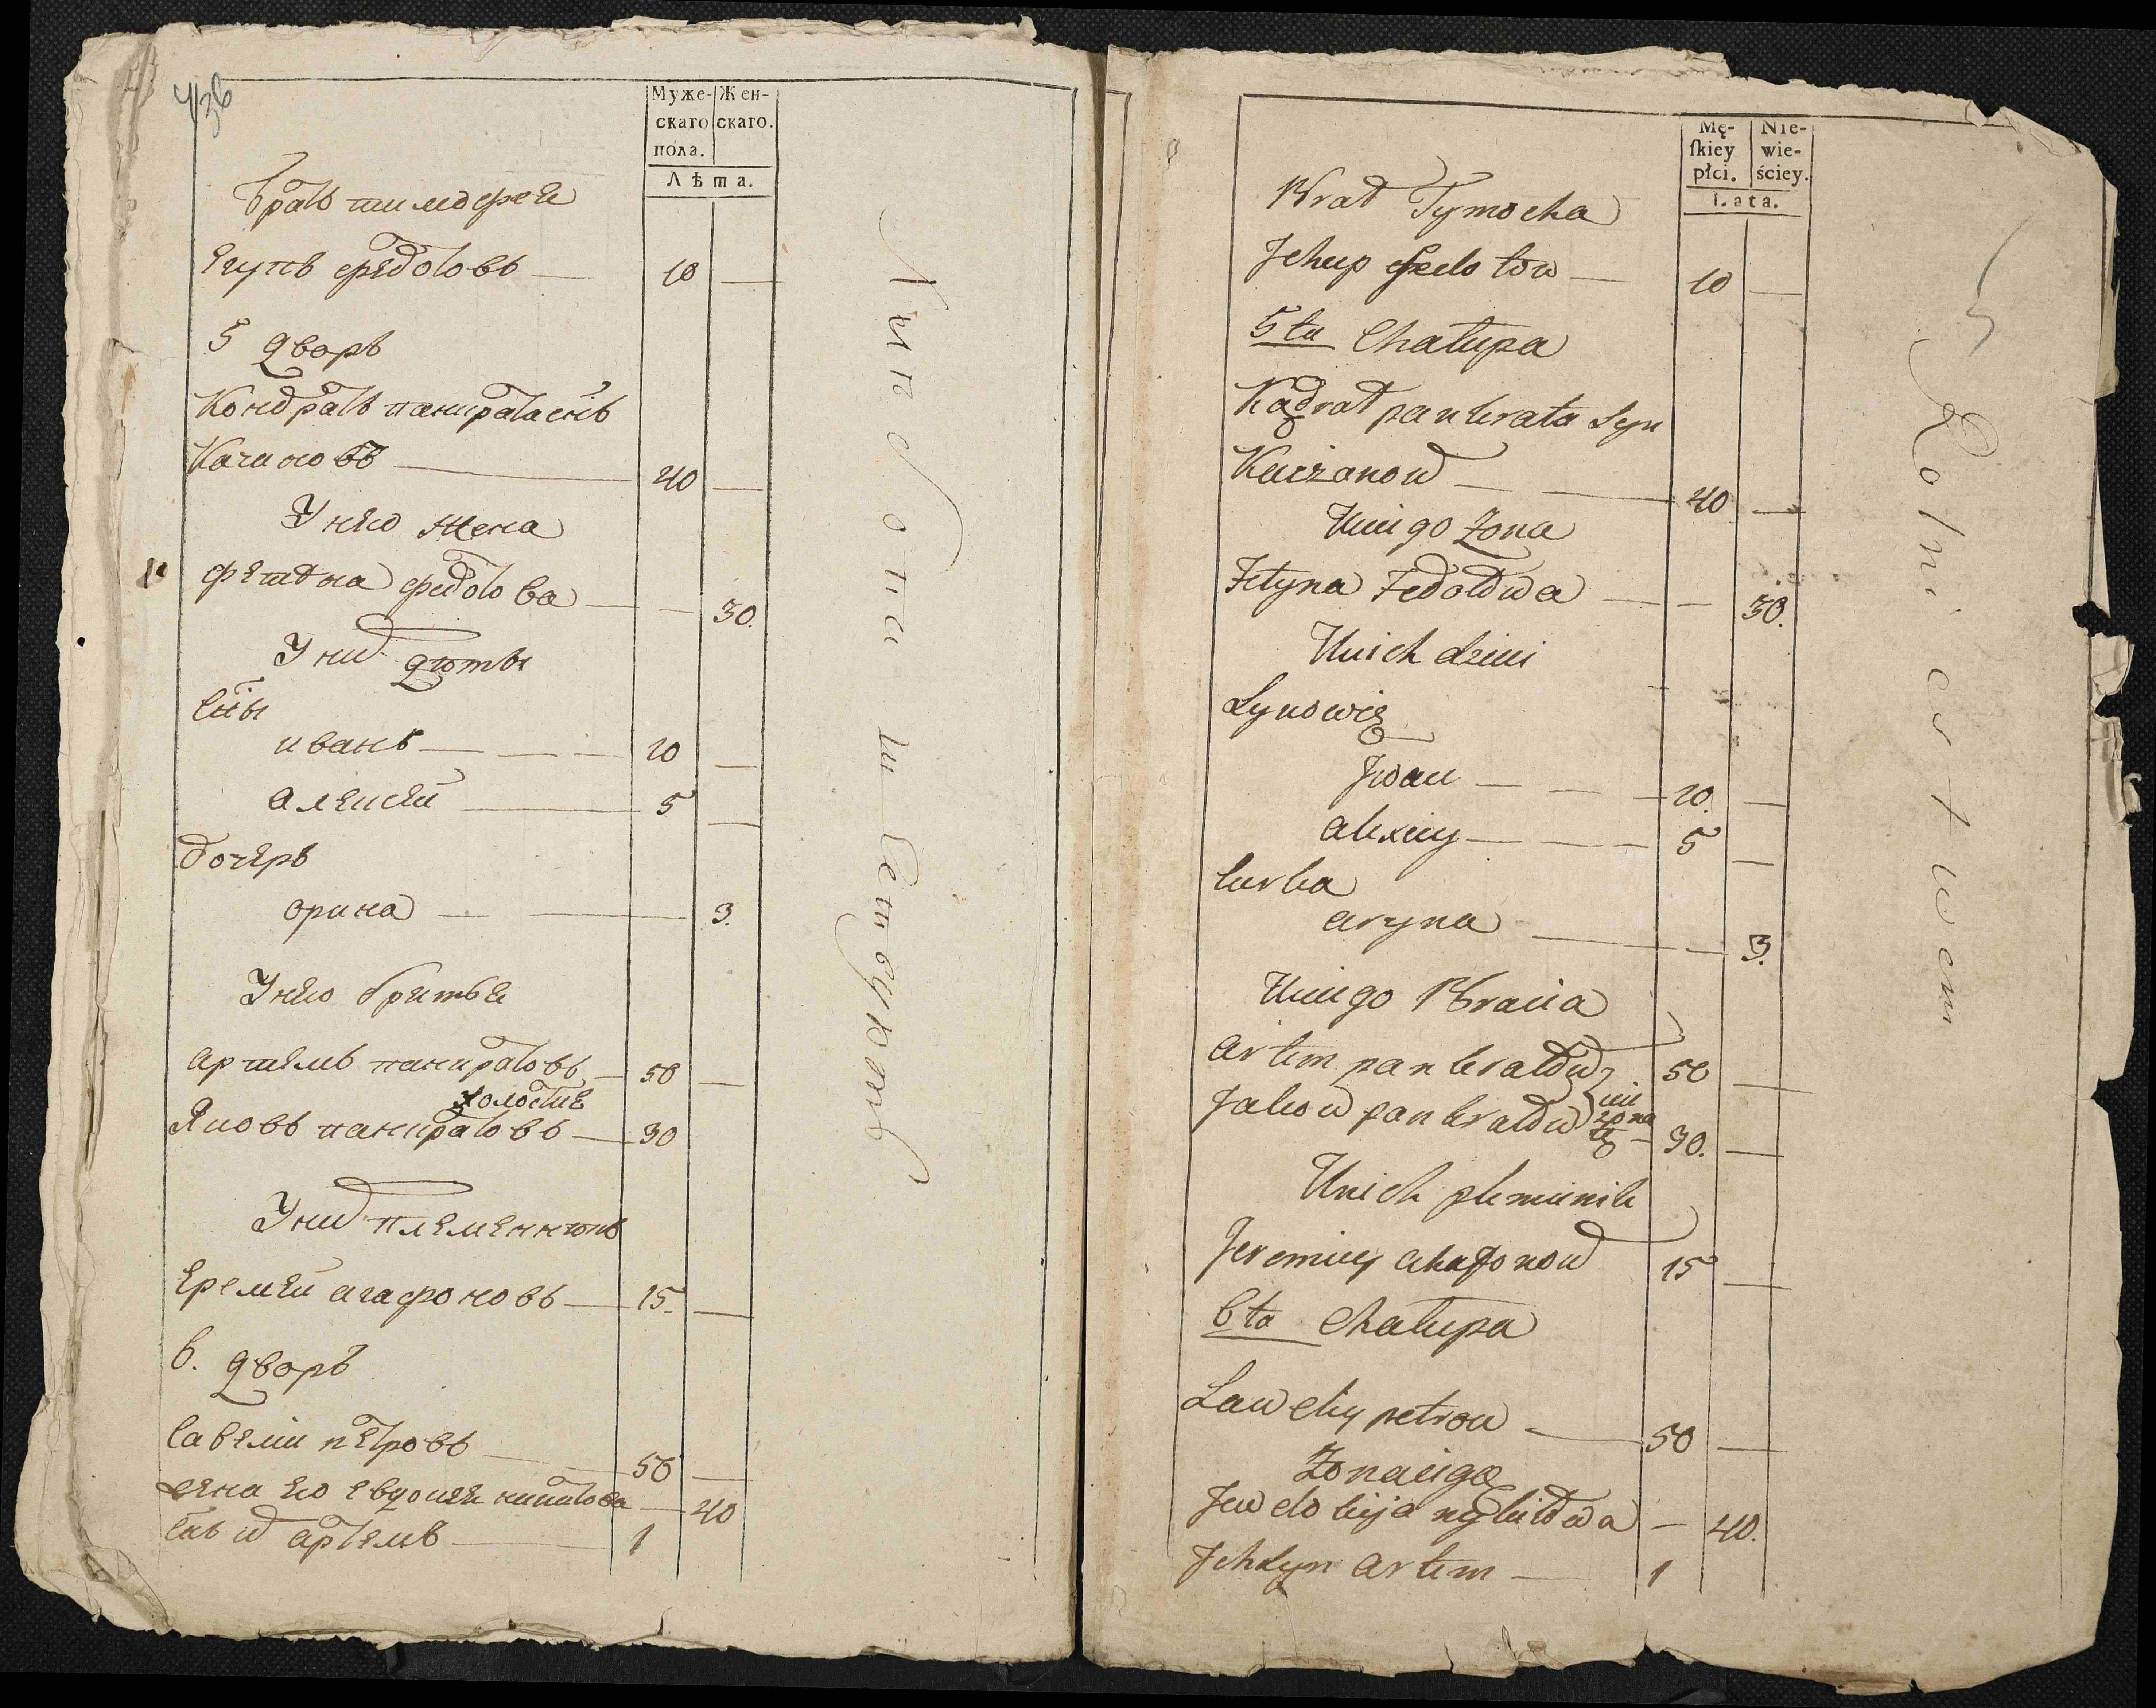 436
Муже-
скаго
пола.
Жен-
скаго.
Лѣта.
братъ тимофеи
Егупъ федотовъ — 10 —
5 дворъ
Кондратъ панкратаснъ
Качановъ — 40 —
У нево жена
фетына федотова — 30.
У них дѣти
Снъи
иванъ — 10 —
алексеи — 5 —
дочеръ
орина — 3.
У нево братья
артемъ панкратовъ — 50 —
холостые
Яковъ панкратовъ — 30
У них племенникъ
Еремеи агафоновъ — 15. —
6. дворъ
Савели петровъ — 50 —
жена ево евдокея никитова — 40
снъ их артемъ — 1
Mę-
ſkiey
płci.
Nie-
wie-
ściey.
Lata.
Brat Tymocha
Jehup Fedotow — 10 —
5ta Chałupa
Kądrat pankrata Syn
Kaczanow — 40 —
Uniego Żona
Fetyna Fedotowa — 30.
Unich dzieci
Synowie
Jwan — 10. —
alexiey — 5 —
Curka
aryna — 3.
Unieigo Bracia
artem pankratow 50 —
Jakow pankratow nie żonate — 30. —
Unich plemienik
Jeremiey ahafonow 15 —
6ta Chałupa
Saweliy petrow — 50 —
Żona iego
Jewdokija nykitowa — 40.
Jch Syn artem — 1
Rolnictwem